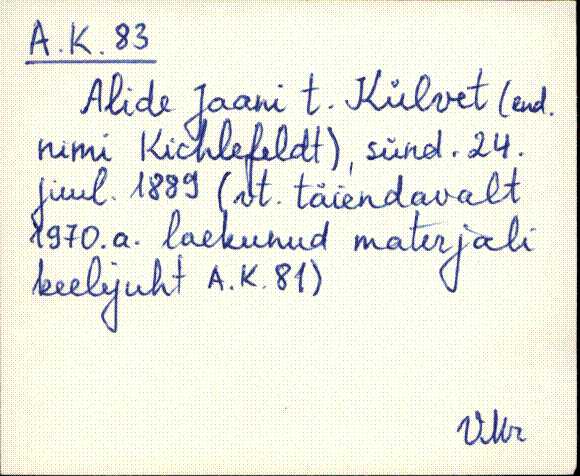 A.K. 83
Alide Jaani t. Külvet (end.
nimi Kichlefeldt), sünd. 24.
juul. 1889 (vt. täiendavalt
1970.a. laekunud materjali
keelejuht A.K. 81)